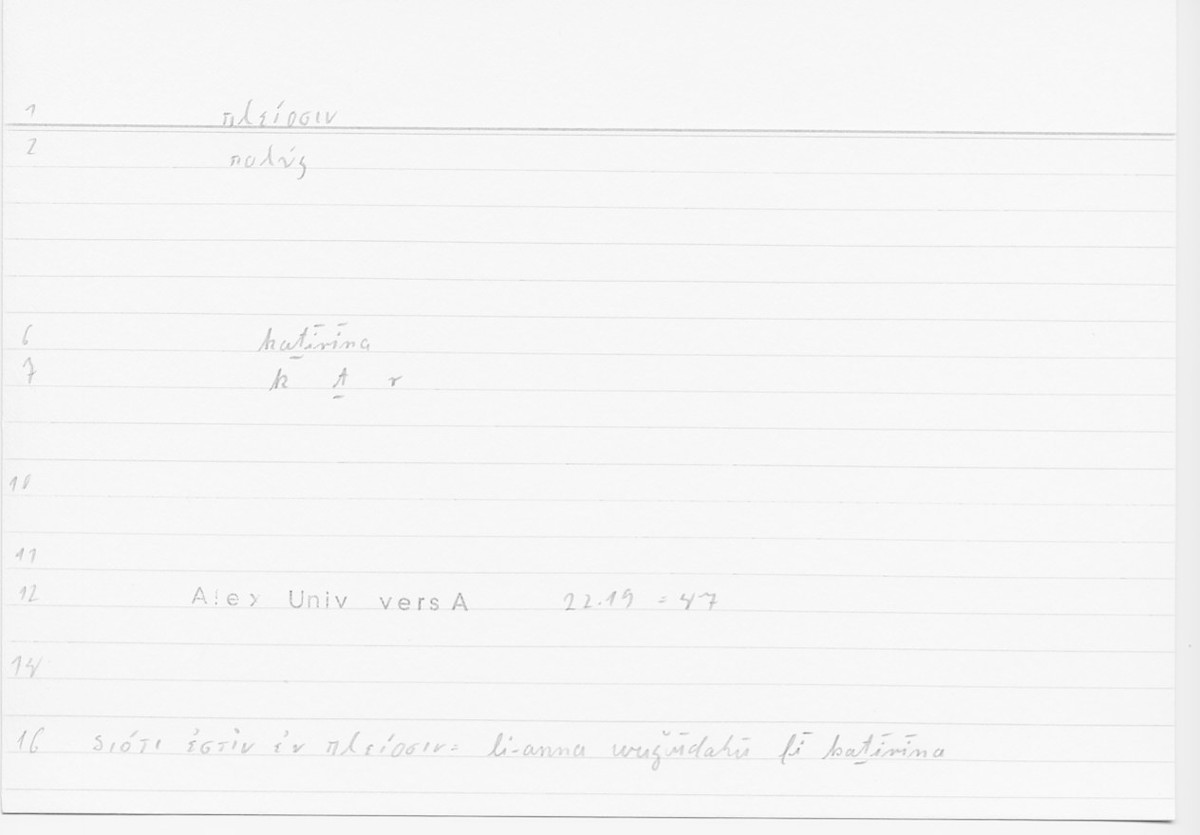 1 πλείοσιν
2 πολύς
6 kaṯīrīna
7 k ṯ r
10
11
12 Alex Univ vers A 22.19 = 47
14
16 διότι ἐστὶν ἐν πλείοσιν = li-anna wuǧūdahū fī kaṯīrīna